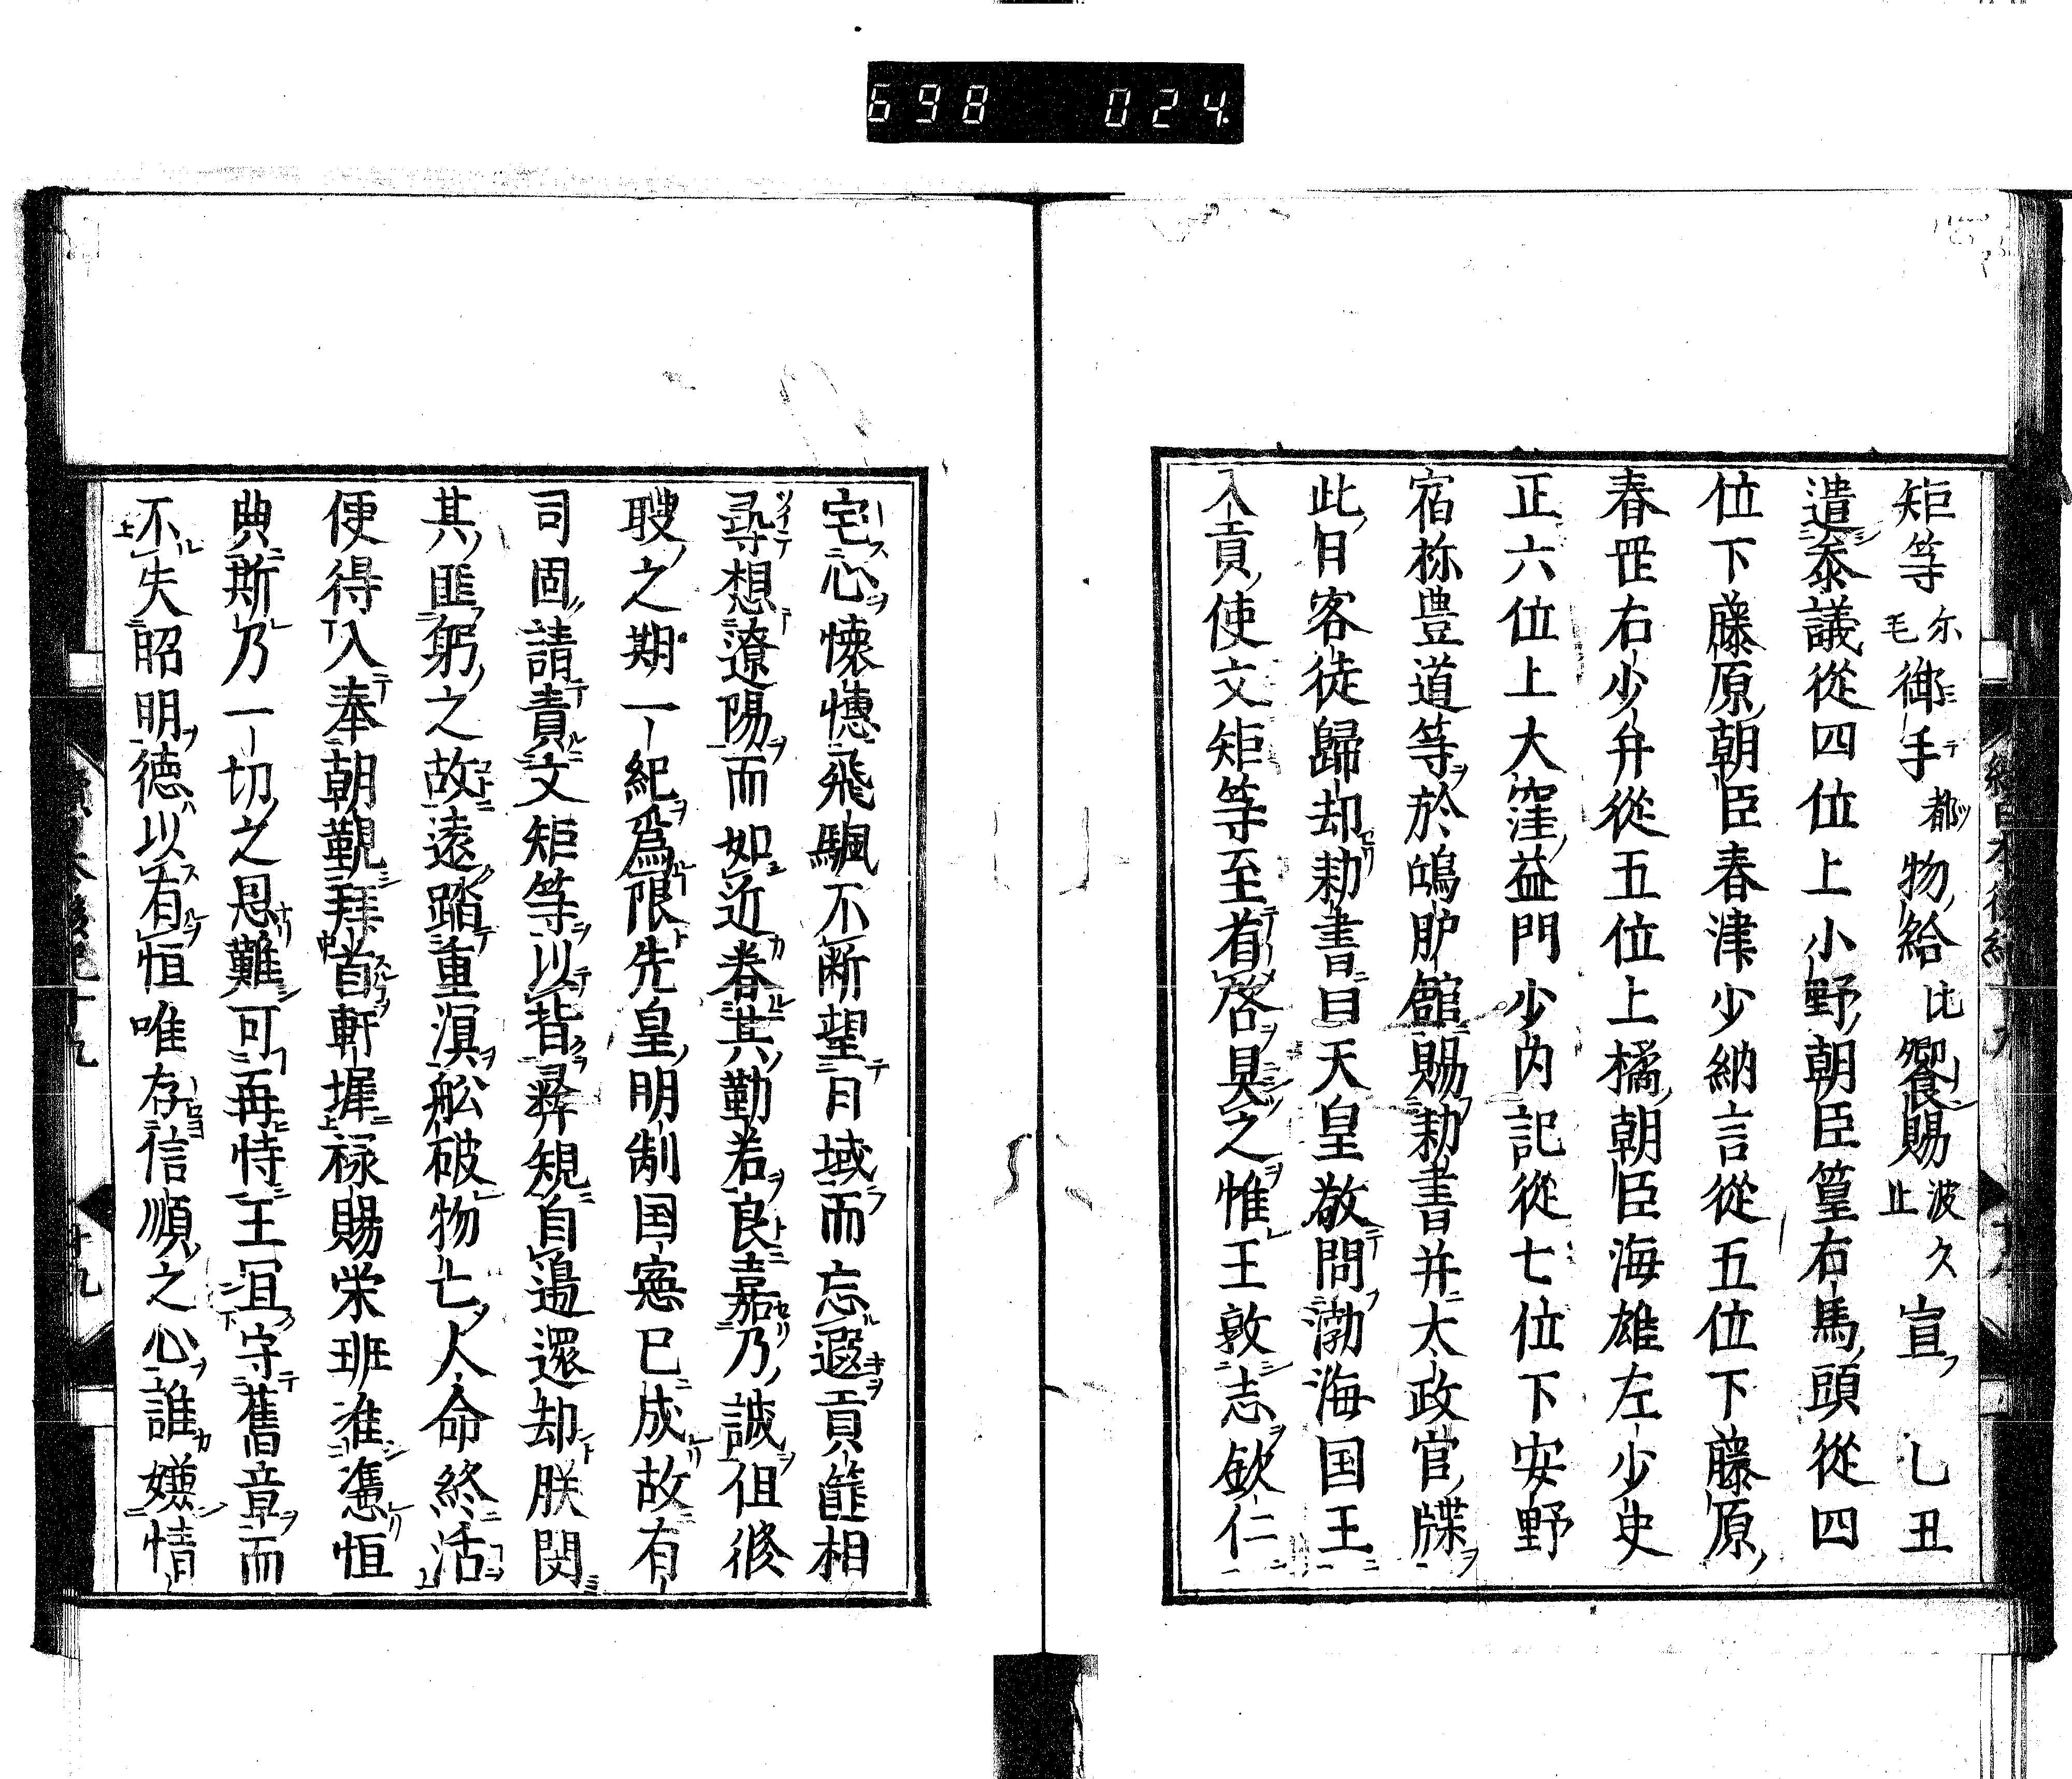 698 024
矩等尓毛御手都物給比饗賜波久止宣乙丑
遣叅議從四位上小野朝臣篁右馬頭從四
位下藤原朝臣春津少納言從五位下藤原
春罡右少弁從五位上橘朝臣海雄左少史
正六位上大窪益門少内記從七位下安野
宿祢豊道等於鴻臚館賜勅書并太政官牒
此日客徒歸却勅書曰天皇敬問渤海国王
入貢使文矩等至省啓具之惟王敦志欽仁
宅心懐憓飛颿不断望日域而忘遐貢篚相
尋想遼陽而如近眷其勤若良嘉乃誠但修
聘之期一紀爲限先皇明制国憲已成故有
司固請責文矩等以背彛䂓自邉還却朕閔
其匪躬之故遠踏重溟舩破物亡人命終活
便得入奉朝覲拜首軒墀禄賜栄班准憑恒
典斯乃一切之恩難可再恃王冝守舊章而
不失昭明徳以有恒唯存信順之心誰嫌情